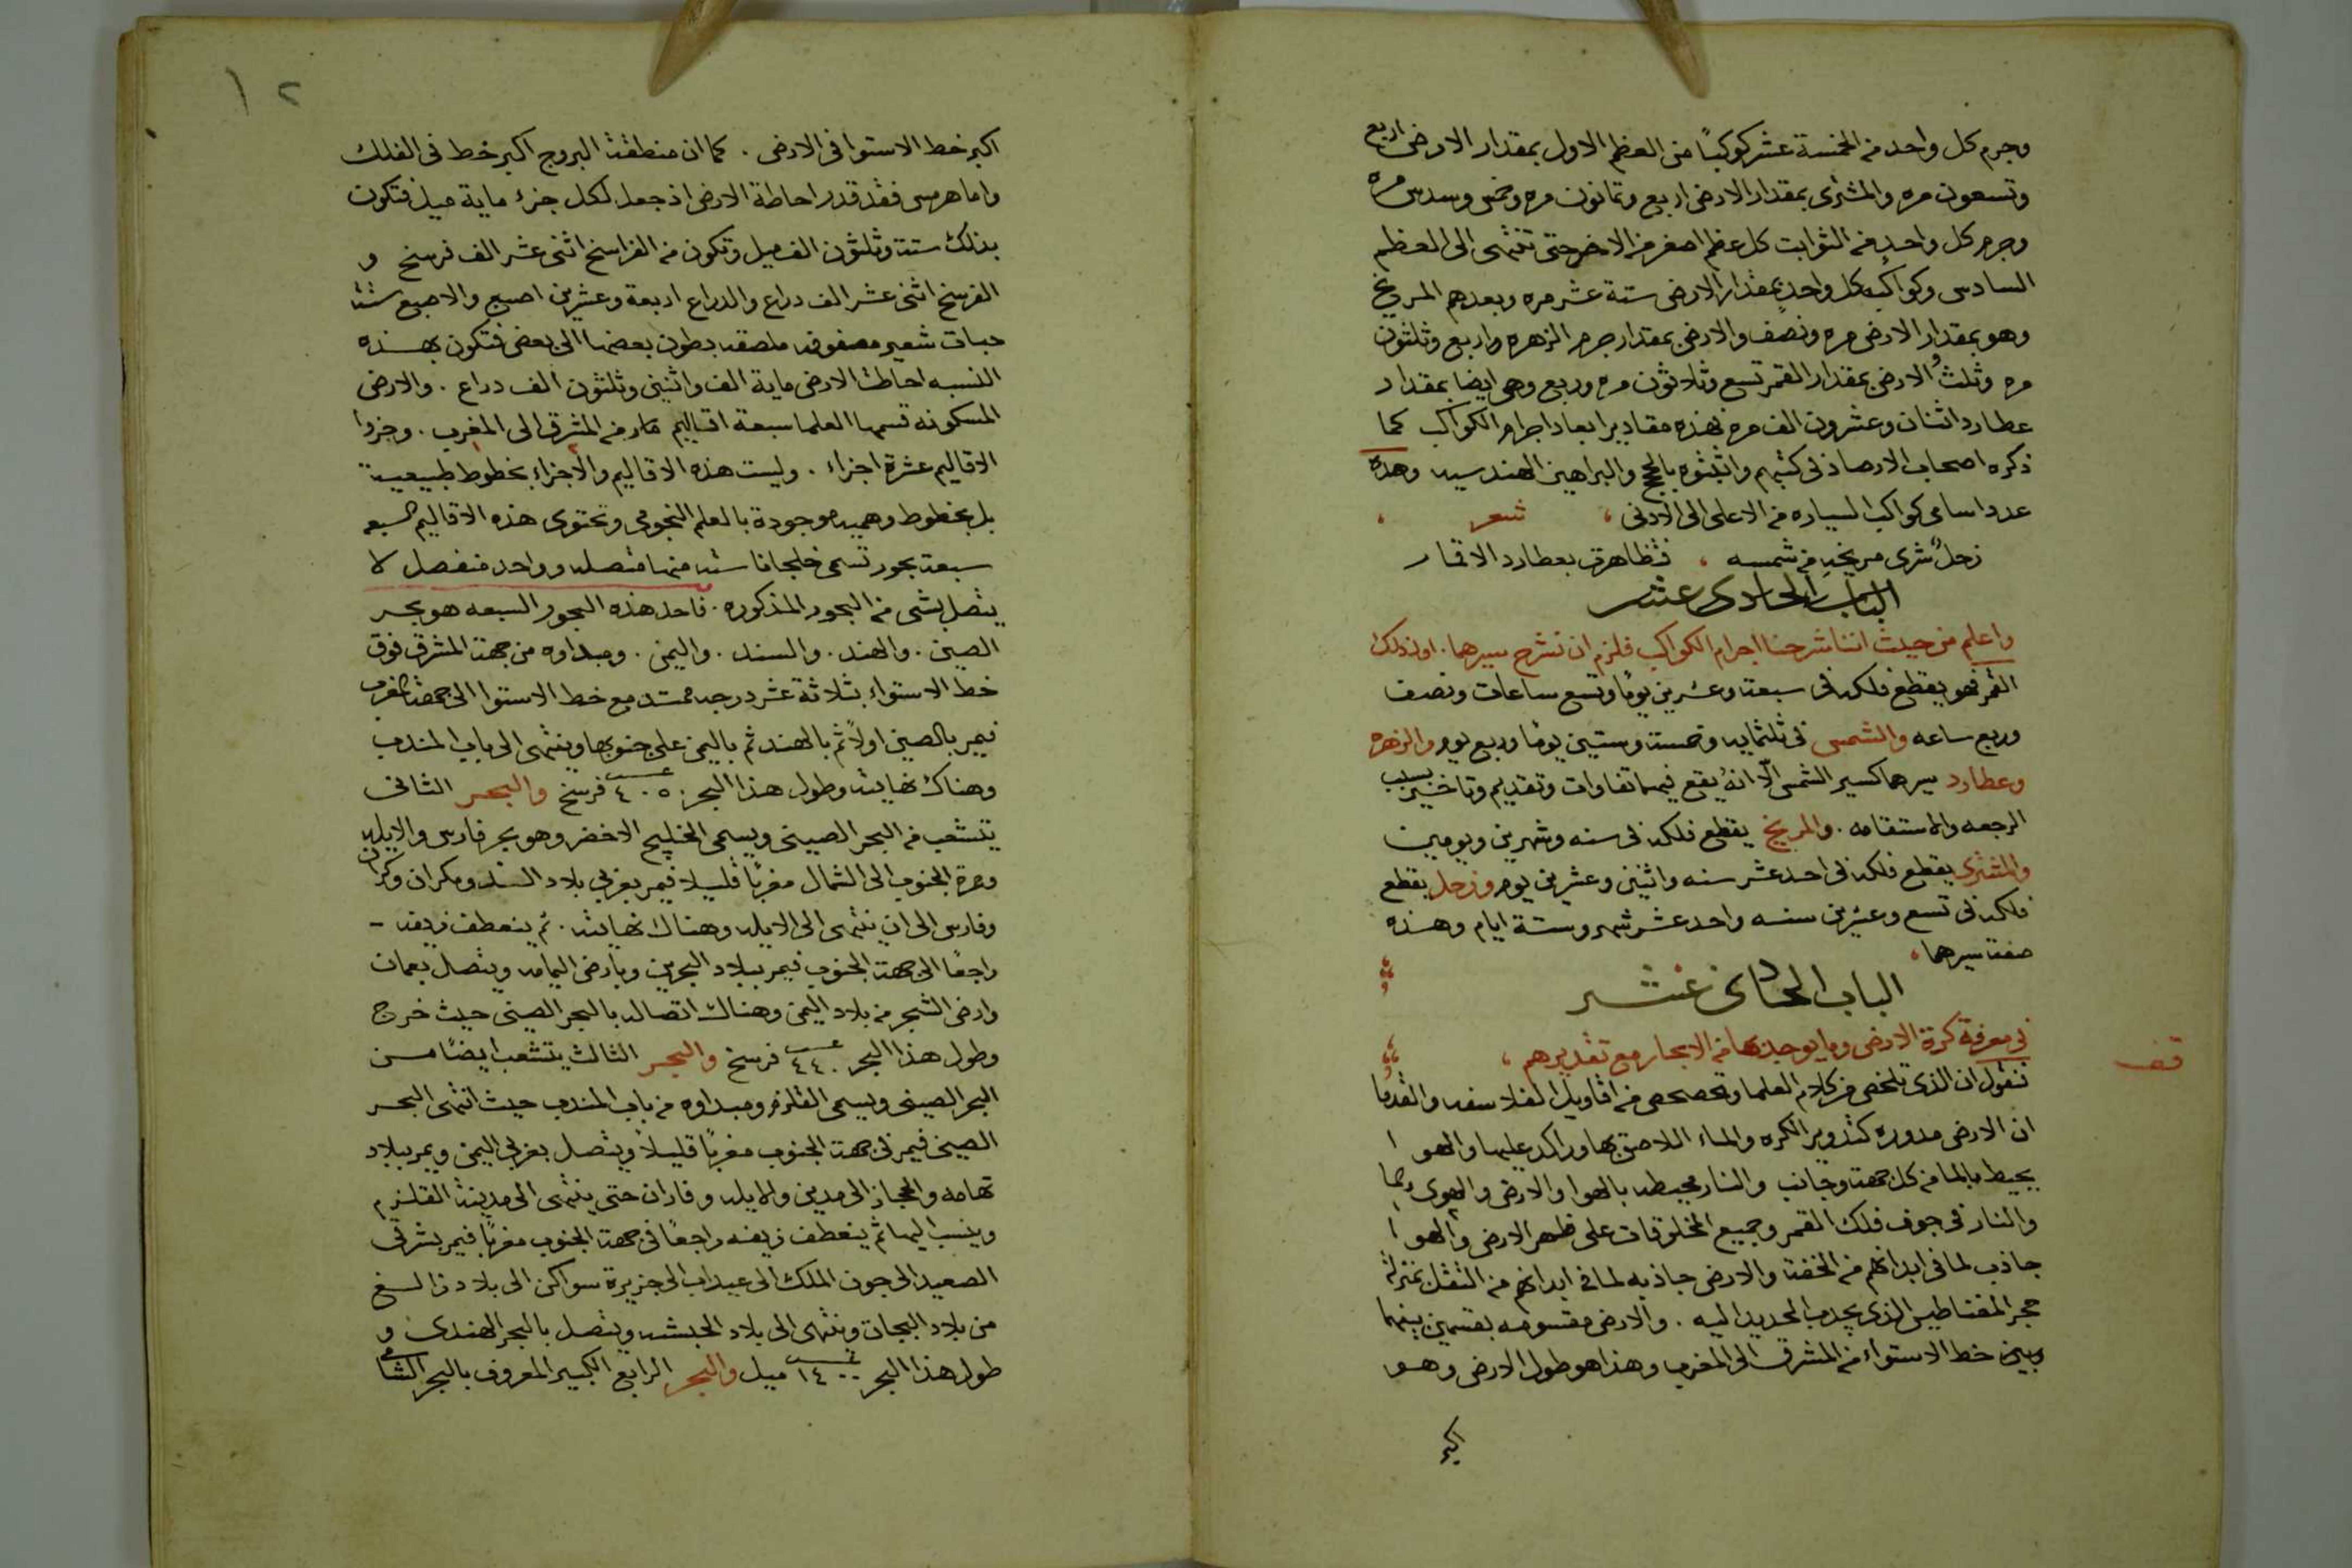 وجرم كل واحد من الخمسة عشر كوكبًا من العظم الاول بمقدار الارض اربع
وتسعون مره والمشترى بمقدار الارض اربع وثمانون مره وخمس وسدس مره
وجرم كل واحد من الثوابت كل عظم اصغر من الاخر حتى تنتهى الى العظم
السادس وكواكبه كل واحد بمقدار الارض ستة عشر مره وبعدهم المريخ
وهو بمقدار الارض مره ونصف والارض بمقدار جرم الزهره واربع وثلثون
مره وثلث والارض بمقدار القمر تسع وثلاثون مره وربع وهى ايضا بمقدار
عطارد اثنان وعشرون الف مره فهذه مقادير ابعاد اجرام الكواكب كما
ذكره اصحاب الارصاد فى كتبهم واثبتوه بالحجج والبراهين الهندسيه وهذه
عدد اسامى كواكب السياره من الاعلى الى الادنى شعر
زحل شرى مريخه من شمسه ، فتظاهرت بعطارد الاقمار
الباب الحادى عشر
واعلم من حيث اننا شرحنا اجرام الكواكب فلزم ان نشرح سيرها . اولا ذلك
القمر فهو يقطع فلكه فى سبعة وعشرين يومًا وتسع ساعات ونصف
وربع ساعه والشمس فى ثلثمايه وخمسة وستين يومًا وربع يوم والزهره
وعطارد سيرهما كسير الشمس الّا انهُ يقع فيهما تفاوات وتقديم وتاخير بسبب
الرجعه والاستقامه . والمريخ يقطع فلكه فى سنه وشهرين ويومين
والمشترى يقطع فلكه فى احد عشر سنه واثنين وعشرين يوم وزحل يقطع
فلكه فى تسع وعشرين سنه واحد عشر شهر وستة ايام وهذه
صفة سيرهما .
الباب الحادى عشر
فى معرفة كرة الارض وما يوجد بها من الابحار مع تقديرهم ،
قف
فنقول ان الذى تلخص من كلام العلما وتحصحص من اقاويل الفلاسفه والقدما
ان الارض مدوره كتدوير الكره والماء اللاصق بها وراكد عليها والهوا
يحيط بالما من كل جهة وجانب والنار محيطه بالهوا والارض والهوى والما
والنار فى جوف فلك القمر وجميع المخلوقات على ظهر الارض والهوا
جاذب لما فى ابدانهم من الخفة والارض جاذبه لما فى ابدانهم من الثقل بمنزلة
حجر المقناطيس الذى يجدب الحديد اليه . والارض مقسومه بقسمين بينهما
وبين خط الاستواء من المشرق الى المغرب وهذا هو طول الارض وهو
اكبر
١٢
اكبر خط الاستوا فى الارض . كما ان منطقة البروج اكبر خط فى الفلك
واما هرمس فقد قدر احاطة الارض اذ جعل لكل جزء ماية ميل فتكون
بذلك ستة وثلثون الف ميل وتكون من الفراسخ اثنى عشر الف فرسخ و
الفرسخ اثنى عشر الف دراع والدراع اربعة وعشرين اصبع والاصبع ستة
حبات شعير مصفوفه ملصقه بطون بعضها الى بعض فتكون بهذه
النسبه احاطة الارض ماية الف واثنين وثلثون الف دراع . والارض
المسكونه قسمها العلما سبعة اقاليم مار من المشرق الى المغرب . وجزوا
الاقاليم عشرة اجزاء . وليست هذه الاقاليم والاجزاء بخطوط طبيعية
بل بخطوط وهميه موجودة بالعلم النجومى وتحتوى هذه الاقاليم السبعه
سبعة بحور تسمى خلجانا سته منها متصله وواحد منفصل لا
يتصل بشى من البحور المذكوره . فاحد هذه البحور السبعه هو بحر
الصين . والهند . والسند . واليمن . ومبداوه من جهة المشرق فوق
خط الاستواء بثلاثة عشر درجه ممتد مع خط الاستوا الى جهة المغرب
فيمر بالصين اولاً ثم بالهند ثم باليمن على جنوبها وينتهى الى باب المندب
وهناك نهايته وطول هذا البحر ٤٠٥٠ فرسخ والبحر الثانى
يتشعب من البحر الصينى ويسمى الخليج الاخضر وهو بحر فارس والابله
ومره الجنوب الى الشمال مغربًا قليلا فيمر بغربى بلاد السند ومكران وكرمان
وفارس الى ان ينتهى الى الابله وهناك نهايته . ثم ينعطف زيقه -
راجعًا الى جهة الجنوب فيمر ببلاد البحرين وبارض اليمامه ويتصل بعمان
وارض الشجر من بلاد اليمن وهناك اتصاله بالبحر الصينى حيث خرج
وطول هذا البحر ٤٤٠ فرسخ والبحر الثالث يتشعب ايضًا من
البحر الصينى ويسمى القلزم ومبداوه من باب المندب حيث انتهى البحر
الصينى فيمر فى جهة الجنوب مغربًا قليلاً ويتصل بغربى اليمن ويمر ببلاد
تهامه والحجاز الى مدين والايله وفاران حتى ينتهى الى مدينة القلزم
وينسب اليها ثم ينعطف زيفه راجعًا فى جهة الجنوب مغربًا فيمر بشرقى
الصعيد الى جون الملك الى عيداب الى جزيرة سواكن الى بلاد زالغ
من بلاد البجاة وينتهى الى بلاد الحبشه ويتصل بالبحر الهندى و
طول هذا البحر ١٤٠٠ ميل والبحر الرابع الكبير المعروف بالبحر الشامى